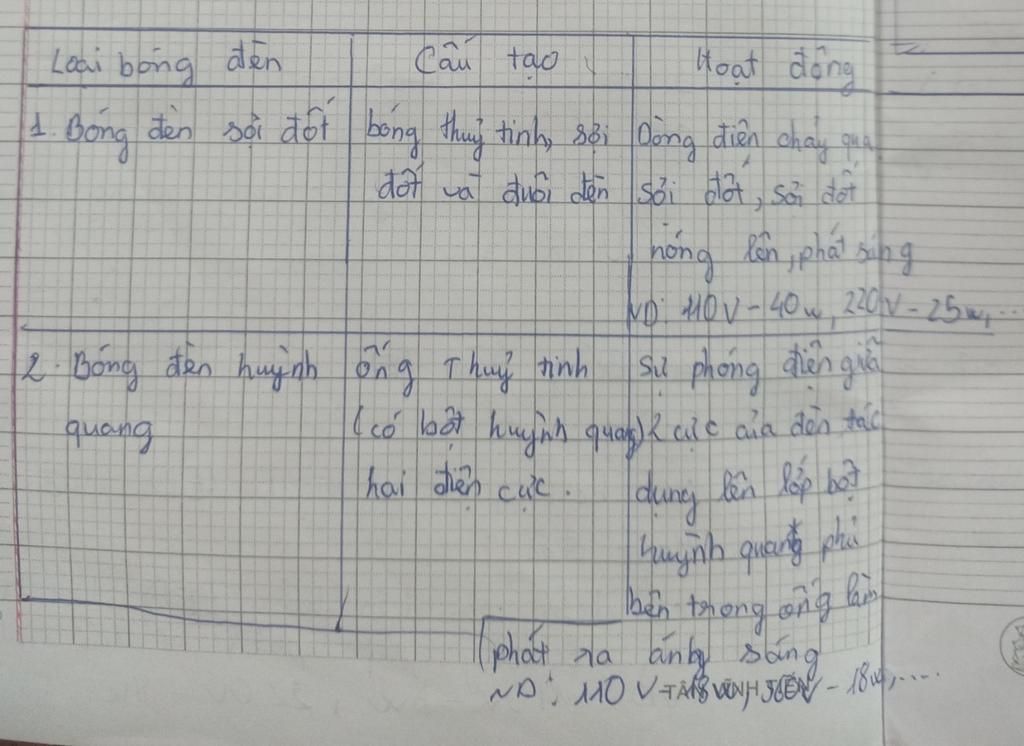 Loại bóng đèn
Cấu tạo
Hoạt động
1. Bóng đèn sợi đốt
bóng thuỷ tinh, sợi
đốt và đuôi đèn
Dòng điện chảy qua
sợi đốt, sợi đốt
nóng lên, phát sáng
VD: 110V - 40w, 220V - 25w,...
2. Bóng đèn huỳnh
quang
ống Thuỷ tinh
(có bột huỳnh quang)
hai điện cực.
Sự phóng điện giữa
2 cực của đèn tác
dụng lên lớp bột
huỳnh quang phủ
bên trong ống làm
phát ra ánh sáng
VD: 110V - 18w,....